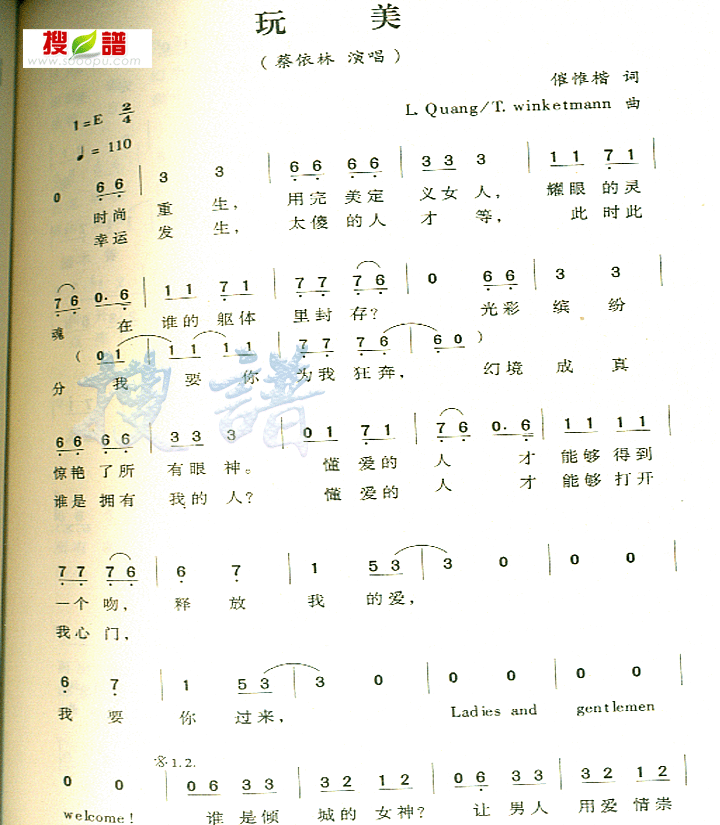 搜谱
www.sooopu.com
玩 美
(蔡依林 演唱)
催惟楷 词
L. Quang/T. winketmann 曲
1=E 2/4
♩= 110
0 6 6 | 3 3 | 6 6 6 6 | 3 3 3 | 1 1 7 1 |
时尚 重 生, 用完 美定 义女 人, 耀眼 的灵
幸运 发 生, 太傻 的人 才 等, 此 时此
7 6 0. 6 | 1 1 7 1 | 7 7 7 6 | 0 6 6 | 3 3 |
魂 在 谁的 躯体 里封 存? 光彩 缤 纷
(0 1 | 1 1 1 1 | 7 7 7 6 | 6 0)
分 我 要 你 为我 狂奔, 幻境 成 真
搜譜
6 6 6 6 | 3 3 3 | 0 1 7 1 | 7 6 0. 6 | 1 1 1 1 |
惊艳 了所 有眼 神。 懂 爱的 人 才 能够 得到
谁是 拥有 我的 人? 懂 爱的 人 才 能够 打开
7 7 7 6 | 6 7 | 1 5 3 | 3 0 | 0 0 |
一个 吻, 释 放 我 的爱,
我心 门,
6 7 | 1 5 3 | 3 0 | 0 0 | 0 0 |
我 要 你 过来, Ladies and gentlemen
1.2.
0 0 | 0 6 3 3 | 3 2 1 2 | 0 6 3 3 | 3 2 1 2 |
welcome! 谁 是倾 城的 女神? 让 男人 用爱 情崇